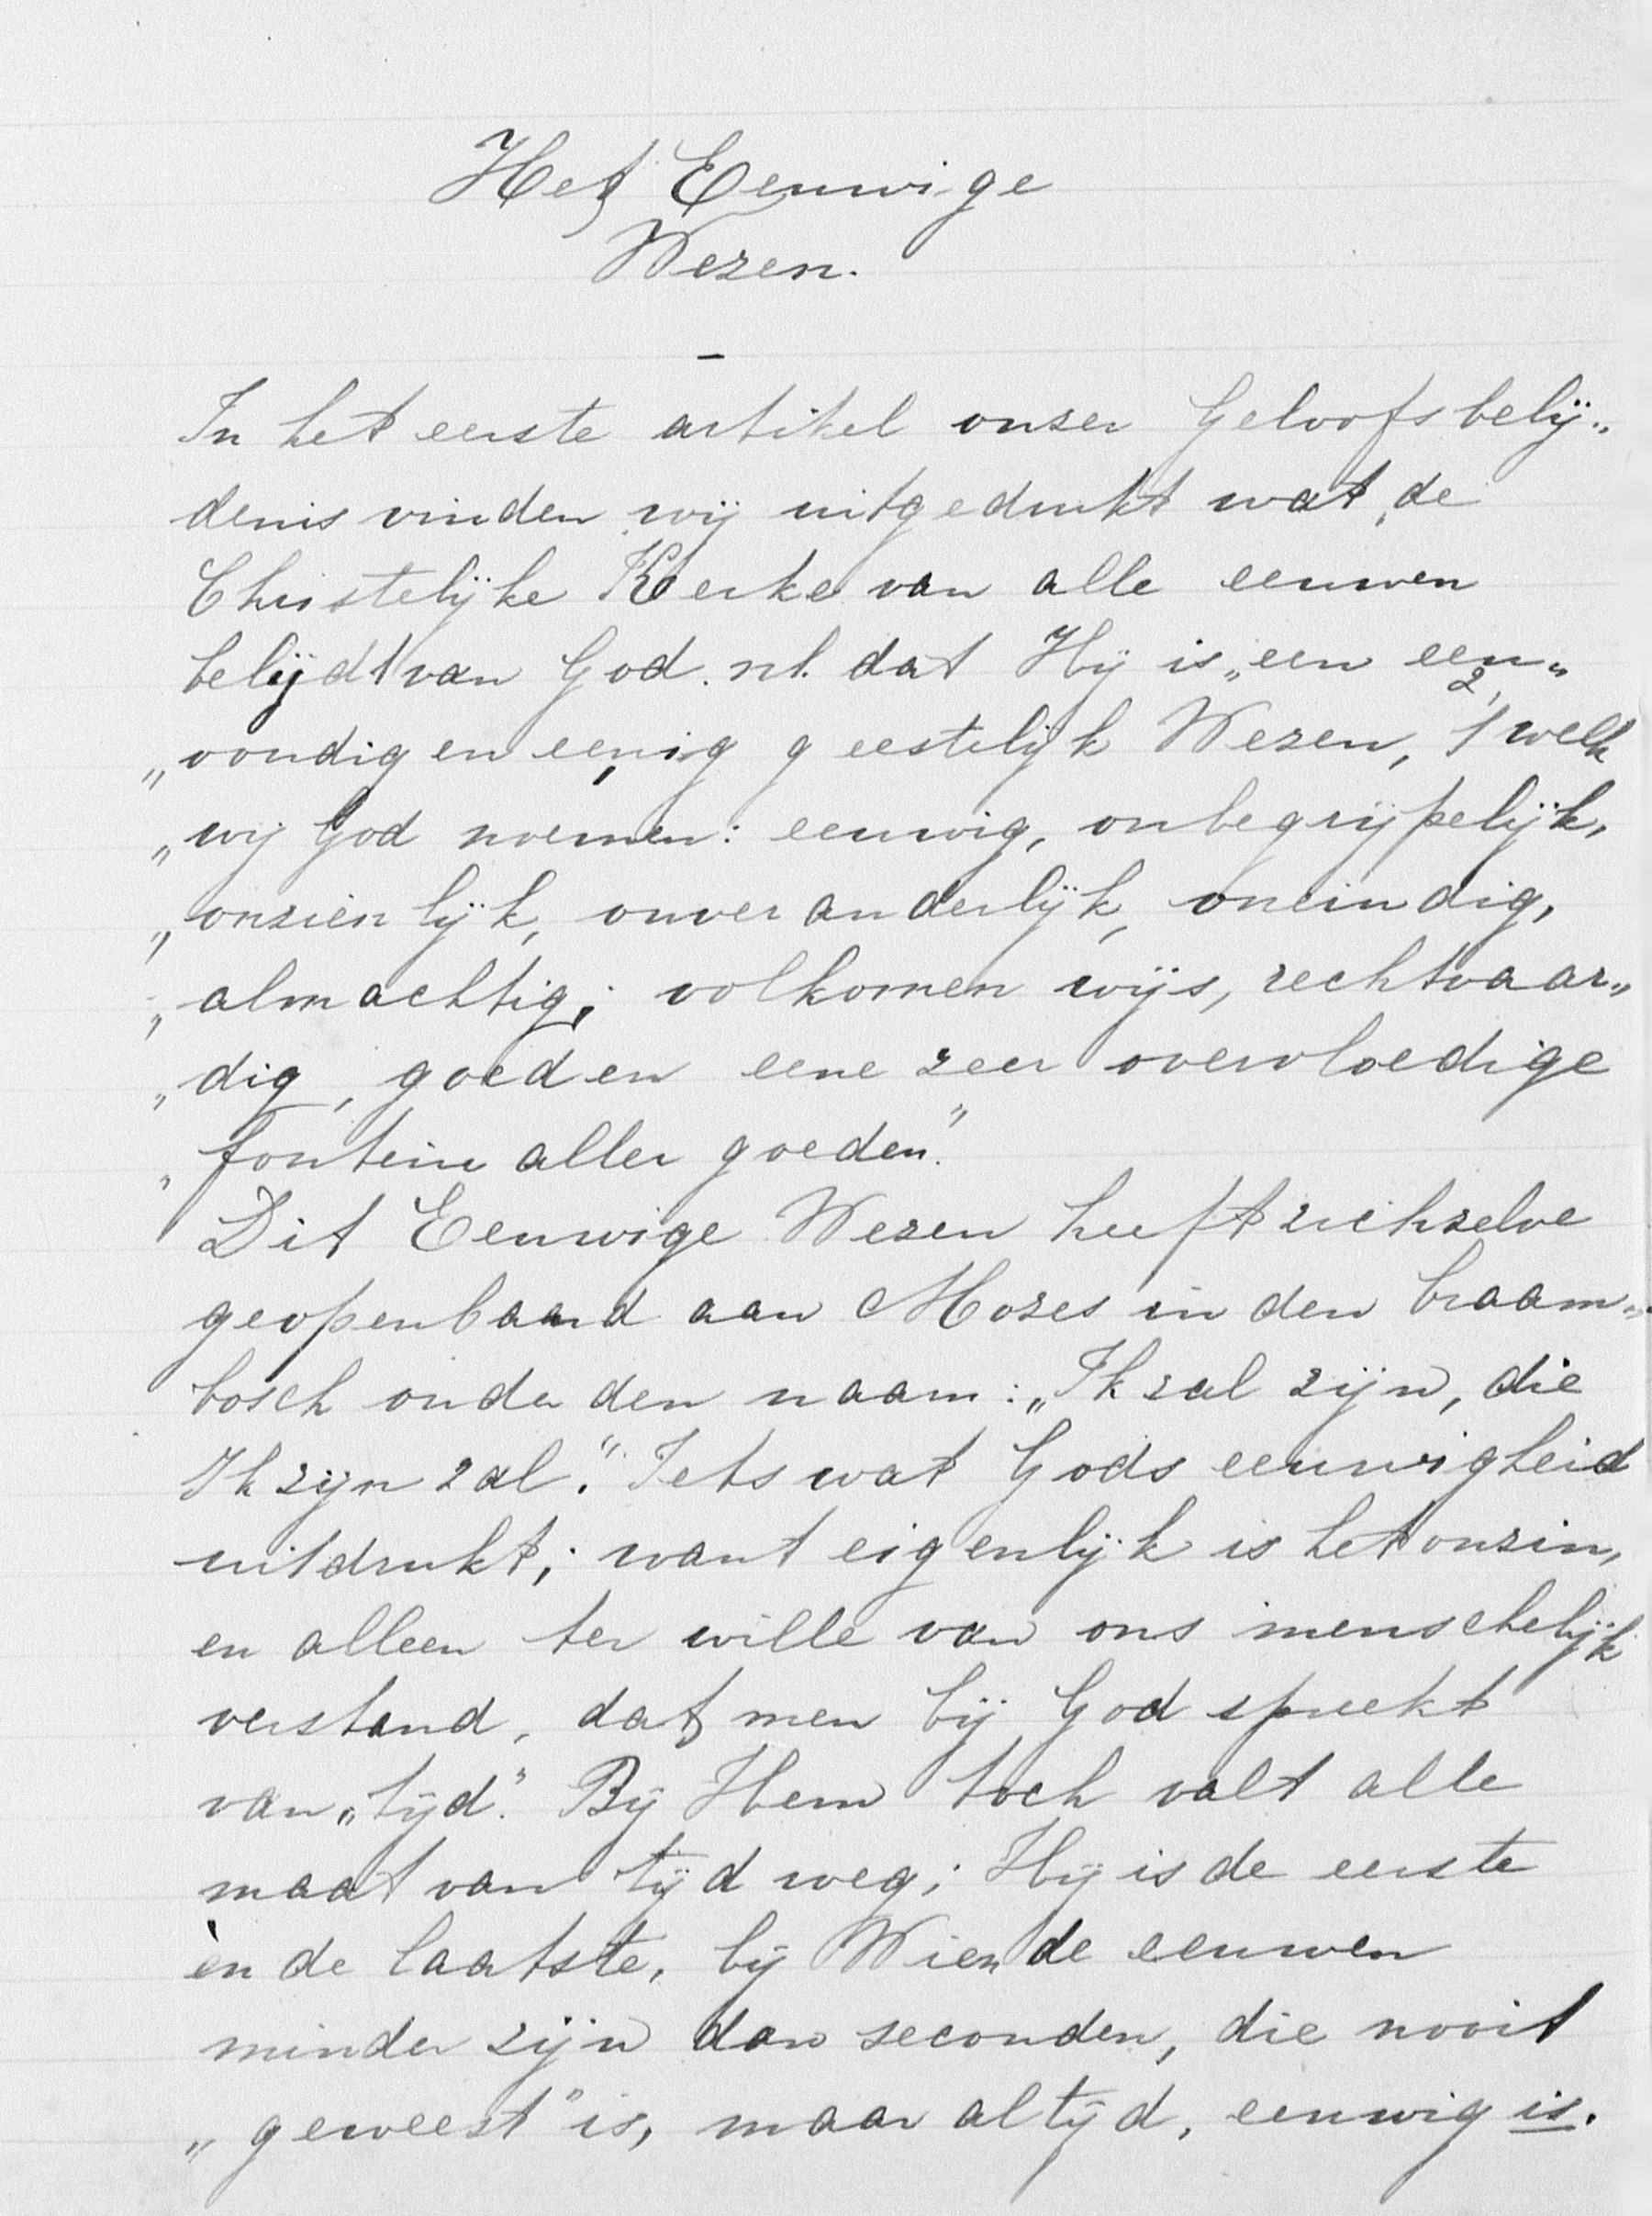 Het Eeuwige
Wezen.
In het eerste artikel onzer Geloofsbelij„
denis vinden wij uitgedrukt wat de
Christelijke Kerke van alle eeuwen
belijdt van God. nl. dat Hij is „een een„
„voudig en eenig geestelijk Wezen, 't welk
„wij God noemen: eeuwig, onbegrijpelijk,
„onzienlijk, onveranderlijk, oneindig,
„almachtig; volkomen wijs, rechtvaar„
„dig, goed en eene zeer overvloedige
„fontein aller goeden."
Dit Eeuwige Wezen heeft zichzelve
geopenbaard aan Mozes in den braam„
bosch onder den naam: „Ik zal zijn, die
Ik zijn zal." Iets wat Gods eeuwigheid
uitdrukt; want eigenlijk is het onzin,
en alleen ter wille van ons menschelijk
verstand, dat men bij God spreekt
van „tijd." Bij Hem toch valt alle
maat van tijd weg; Hij is de eerste
èn de laatste, bij Wien de eeuwen
minder zijn dan seconden, die nooit
„geweest" is, maar altijd, eeuwig is.